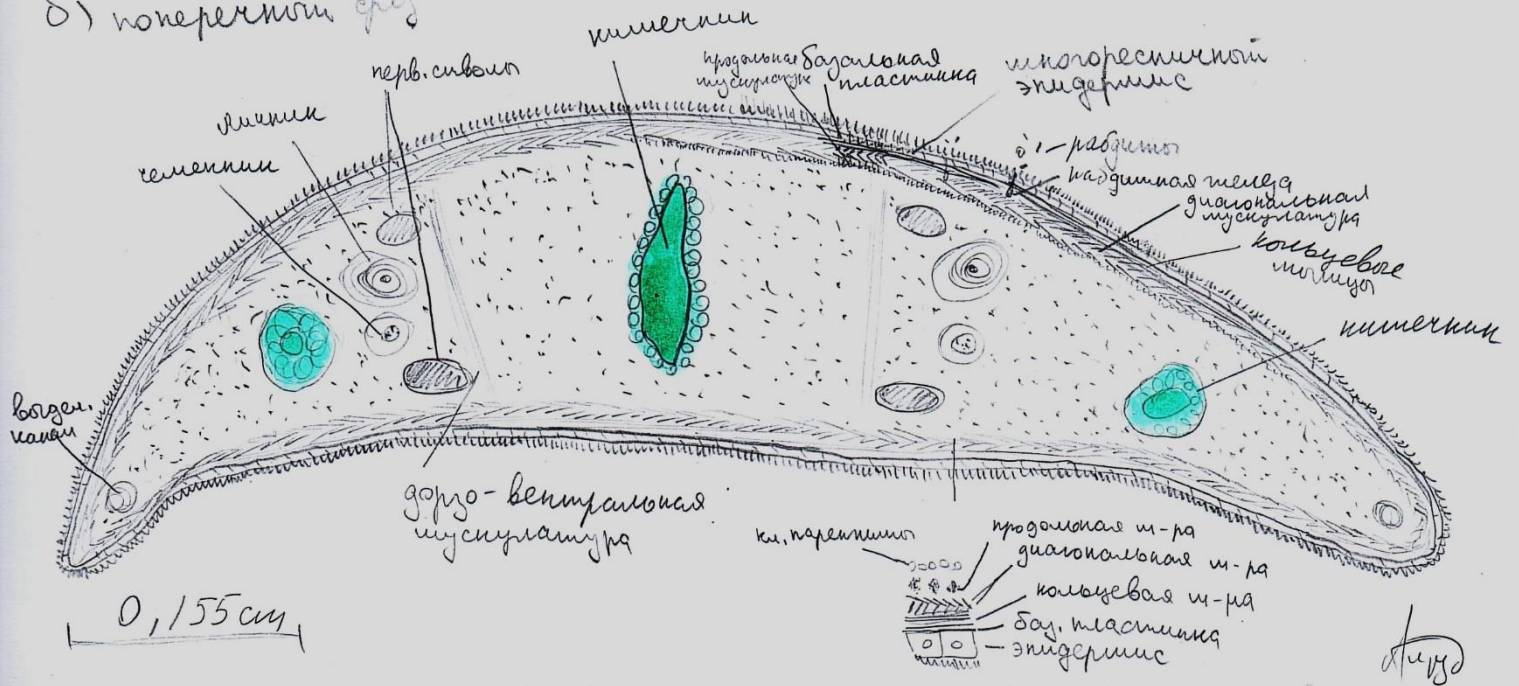 б) поперечный срез
кишечник
перв. стволы
яичник
семенник
продольная
мускулатура
базальная
пластинка
многоресничный
эпидермис
рабдиты
рабдитная железа
диагональная
мускулатура
кольцевые
мышцы
кишечник
выдел.
канал
дорзо-вентральная
мускулатура
0,155 см
кл. паренхимы
продольная м-ра
диагональная м-ра
кольцевая м-ра
баз. пластинка
эпидермис